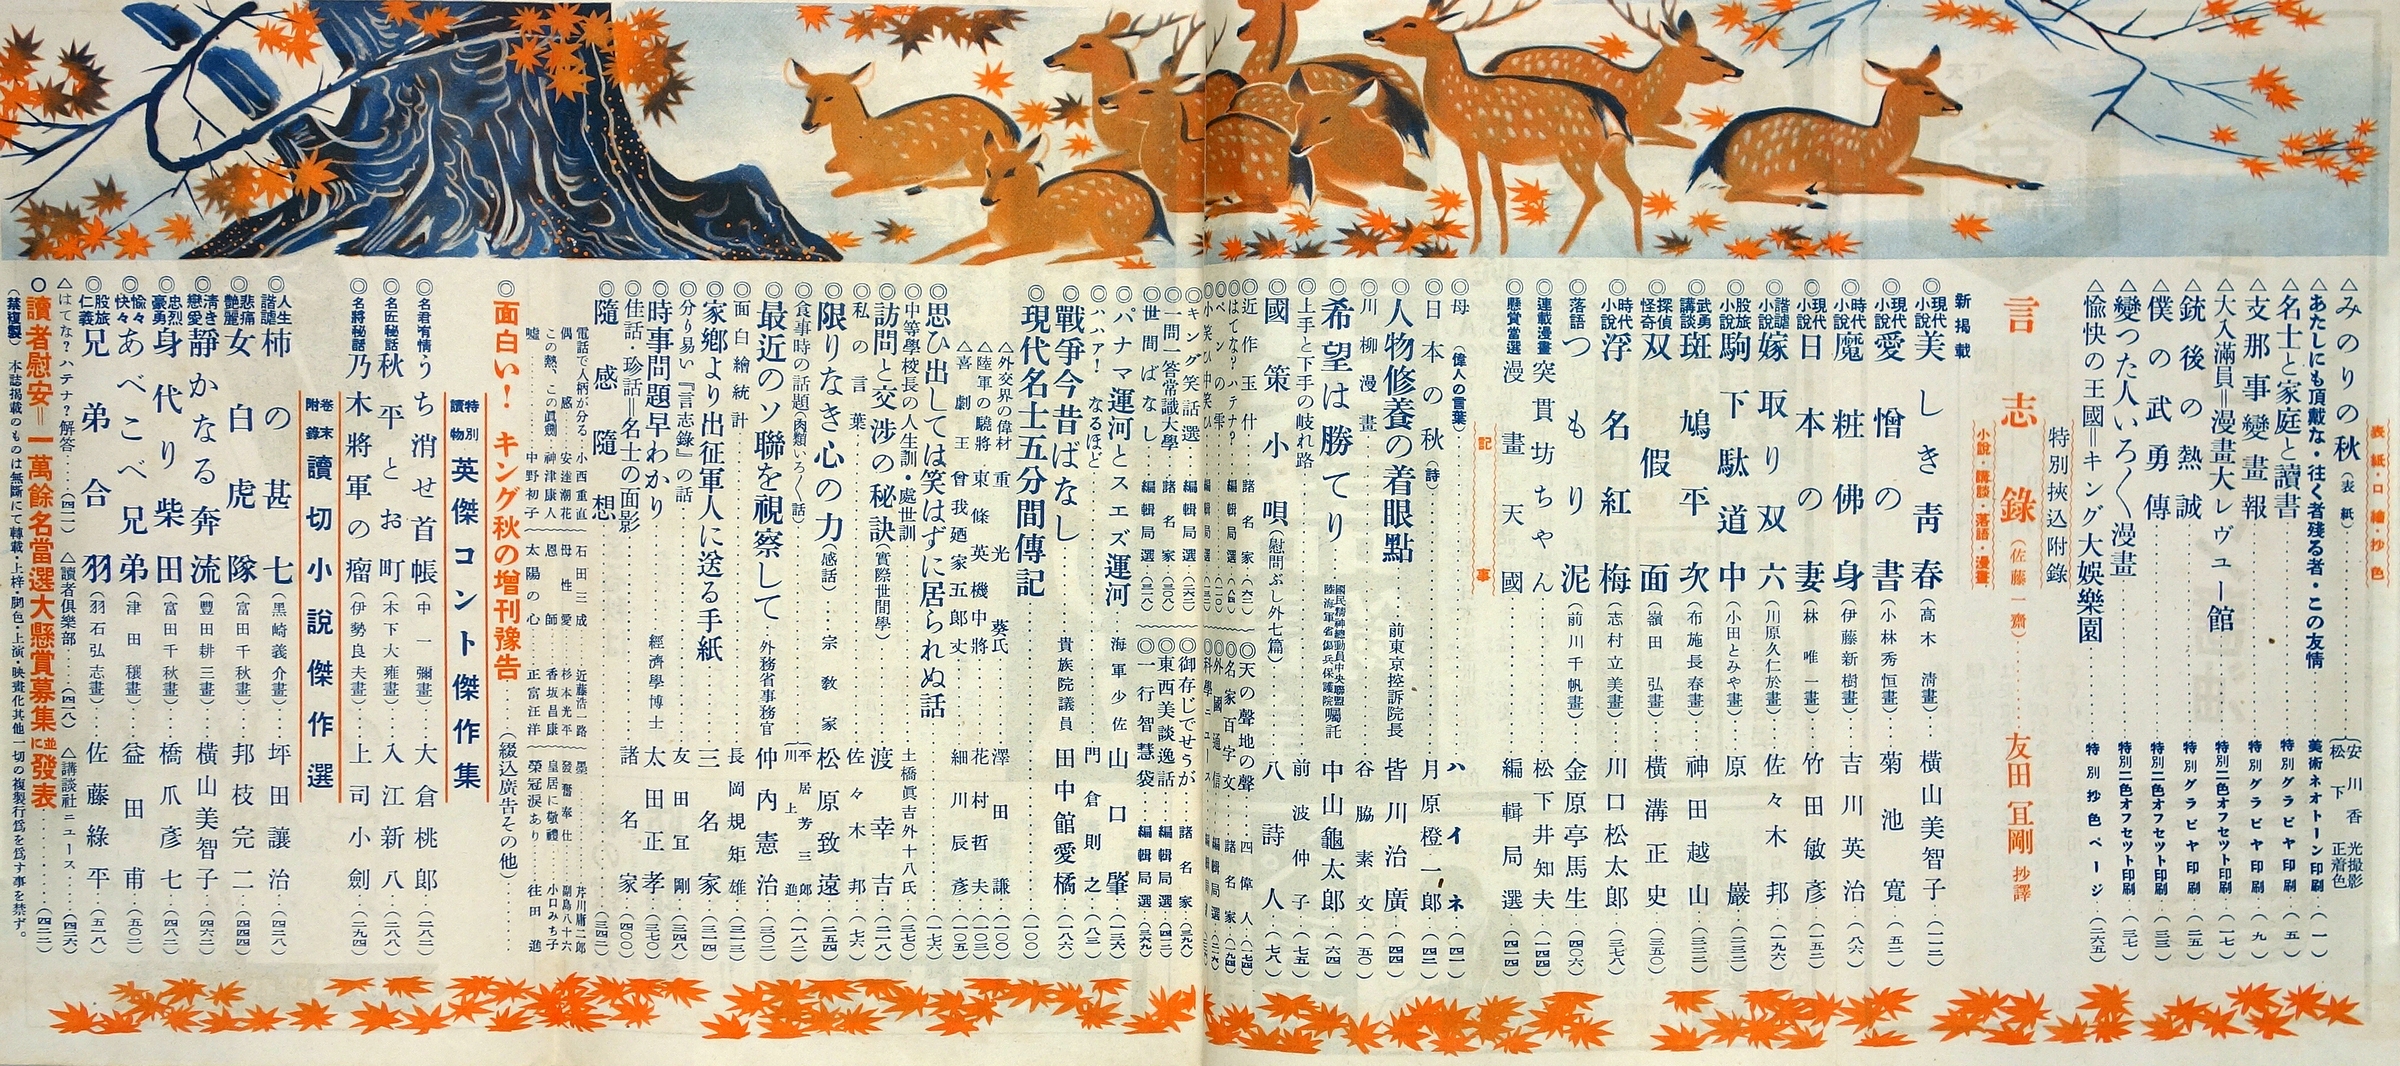 表紙・口繪・抄色
△みのりの秋(表紙)…安川香光撮影 松下正着色
△あたしにも頂戴な・往く者殘る者・この友情…美術ネオトーン印刷(一)
△名士と家庭と讀書…特別グラビヤ印刷(五)
△支那事變畫報…特別グラビヤ印刷(九)
△大入滿員=漫畫大レヴュー館…特別二色オフセツト印刷(一七)
△銃後の熱誠…特別グラビヤ印刷(二五)
△僕の武勇傳…特別二色オフセツト印刷(三三)
△變つた人いろ〱漫畫…特別二色オフセツト印刷(三七)
△愉快の王國=キング大娯樂園…特別抄色ページ(二六五)
特別挾込附錄
言志錄(佐藤一齋)…友田宜剛抄譯
小說・講談・落語・漫畫
新揭載
◎現代小說 美しき靑春(高木淸畫)…橫山美智子(一一二)
◎現代小說 愛憎の書(小林秀恒畫)…菊池寬(五二)
◎時代小說 魔粧佛身(伊藤新樹畫)…吉川英治(八六)
◎現代小說 日本の妻(林唯一畫)…竹田敏彥(一五二)
◎諧謔小說 嫁取り双六(川原久仁於畫)…佐々木邦(一九六)
◎股旅小說 駒下駄道中(小田とみや畫)…原巖(二三二)
◎武勇講談 斑鳩平次(布施長春畫)…神田越山(三三二)
◎探偵怪奇 双假面(嶺田弘畫)…橫溝正史(三五〇)
◎時代小說 浮名紅梅(志村立美畫)…川口松太郎(三七八)
◎落語 つもり泥(前川千帆畫)…金原亭馬生(四〇六)
◎連載漫畫 突貫坊ちやん…松下井知夫(一四四)
◎懸賞當選 漫畫天國…編輯局選(四一四)
記事
◎母(偉人の言葉)…ハイネ(四一)
◎日本の秋(詩)…月原橙一郎(四二)
◎人物修養の着眼點…前東京控訴院長 皆川治廣(四四)
◎川柳漫畫…谷脇素文(五〇)
◎希望は勝てり…國民精神總動員中央聯盟 陸海軍省傷兵保護院囑託 中山龜太郎(六四)
◎上手と下手の岐れ路…前波仲子(七五)
◎國策小唄(慰問ぶし外七篇)…八詩人(七八)
◎近作玉什…諸名家(六二)
◎はてな?ハテナ?…編輯局選(八四)
◎ペンの雫
◎天の聲地の聲…四偉人(七四)
◎名家百字文…諸名家(九四)
◎外國通信…編輯局選
◎科學ニュース
◎キング笑話選…編輯局選(二六二)
◎一問一答常識大學…諸名家(三〇八)
◎世間ばなし…編輯局選(三二八)
◎御存じでせうが…諸名家(三九〇)
◎東西美談逸話…編輯局選(四一二)
◎一行智慧袋…編輯局選(三六九)
◎パナマ運河とスエズ運河…海軍少佐 山口肇(一三六)
◎ハハア!なるほど…門倉則之(八三)
◎戰爭今昔ばなし…貴族院議員 田中館愛橘(一八六)
◎現代名士五分間傳記…(一〇〇)
△外交界の偉材 重光葵氏…澤田謙(一〇〇)
△陸軍の驍將 東條英機中將…花村哲夫(一〇三)
△喜劇王 曾我廼家五郎丈…細川辰彥(一〇五)
◎思ひ出しては笑はずに居られぬ話…(一七六)
◎中等學校長の人生訓・處世訓…土橋眞吉外十八氏(三七〇)
◎訪問と交涉の秘訣(實際世間學)…渡幸吉(二一八)
◎私の言葉…佐々木邦(七六)
◎限りなき心の力(感話)…宗敎家 松原致遠(二五四)
◎食事時の話題(肉類いろ〱話)…平居芳三郎 川上進(一八二)
◎最近のソ聯を視察して…外務省事務官 仲內憲治(三〇二)
◎面白繪統計…長岡規矩雄(三一三)
◎家鄕より出征軍人に送る手紙…三名家(三一四)
◎分り易い『言志錄』の話…友田宜剛(三四八)
◎時事問題早わかり…經濟學博士 太田正孝(三七〇)
◎佳話・珍話=名士の面影…諸名家(四〇〇)
◎隨感隨想…(三四二)
電話で人柄が分る・小西重直
偶感・安達潮花
この熱、この眞劍・神津康人
噓・中野初子
石田三成・近藤浩一路
母性愛・杉本光平
恩師・香坂昌康
太陽の心・正富汪洋
墨・芹川庸二郎
發奮奉仕・副島八十六
皇居に敬禮・小口みち子
榮冠淚あり・往田進
◎面白い!キング秋の增刊豫告…(綴込廣告その他)…
特別讀物 英傑コント傑作集
◎名君有情 うち消せ首帳(中一彌畫)…大倉桃郎(二八二)
◎名匠秘話 秋平とお町(木下大雍畫)…入江新八(二八八)
◎名將秘話 乃木將軍の瘤(伊勢良夫畫)…上司小劍(二九四)
卷末附錄 讀切小說傑作選
◎人生諧謔 柿の甚七(黑崎義介畫)…坪田讓治(四二八)
◎悲痛艷麗 女白虎隊(富田千秋畫)…邦枝完二(四四四)
◎淸き戀愛 靜かなる奔流(豐田耕三畫)…橫山美智子(四六二)
◎忠烈豪勇 身代り柴田(富田千秋畫)…橋爪彥七(四八二)
◎愉々快々 あべこべ兄弟(津田穰畫)…益田甫(五〇二)
◎股旅仁義 兄弟合羽(羽石弘志畫)…佐藤綠平(五一八)
△はてな?ハテナ?解答…(四二一) △讀者俱樂部…(四一八) △講談社ニュース…(四二六)
◯讀者慰安=一萬餘名當選大懸賞募集並に發表…(四二二)
(禁複製) 本誌揭載のものは無斷にて轉載・上梓・脚色・上演・映畫化其他一切の複製行爲を爲す事を禁ず。